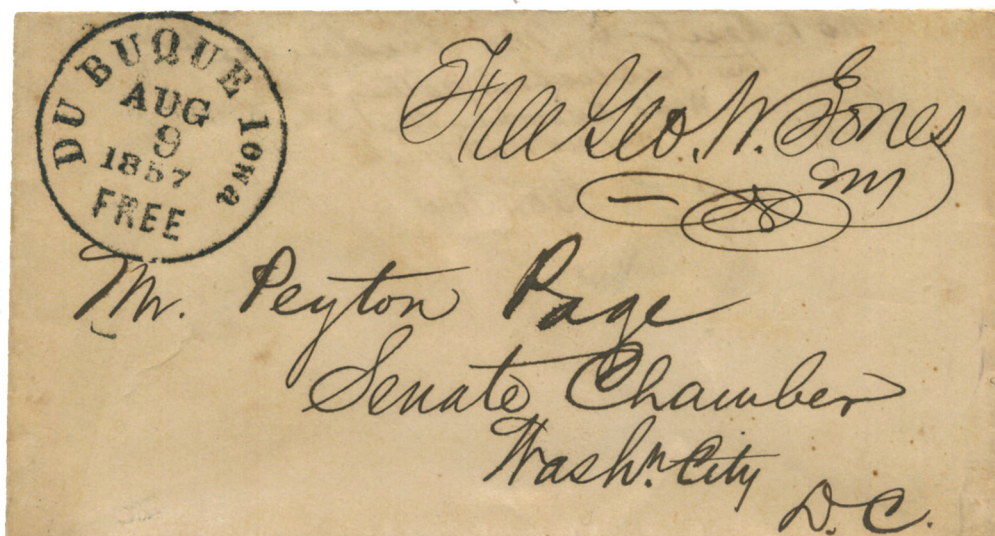 DU BUQUE Iowa
AUG
9
1857
FREE
Free Geo. W. Jones
Mr. Peyton Page
Senate Chamber
Washn. City
D.C.